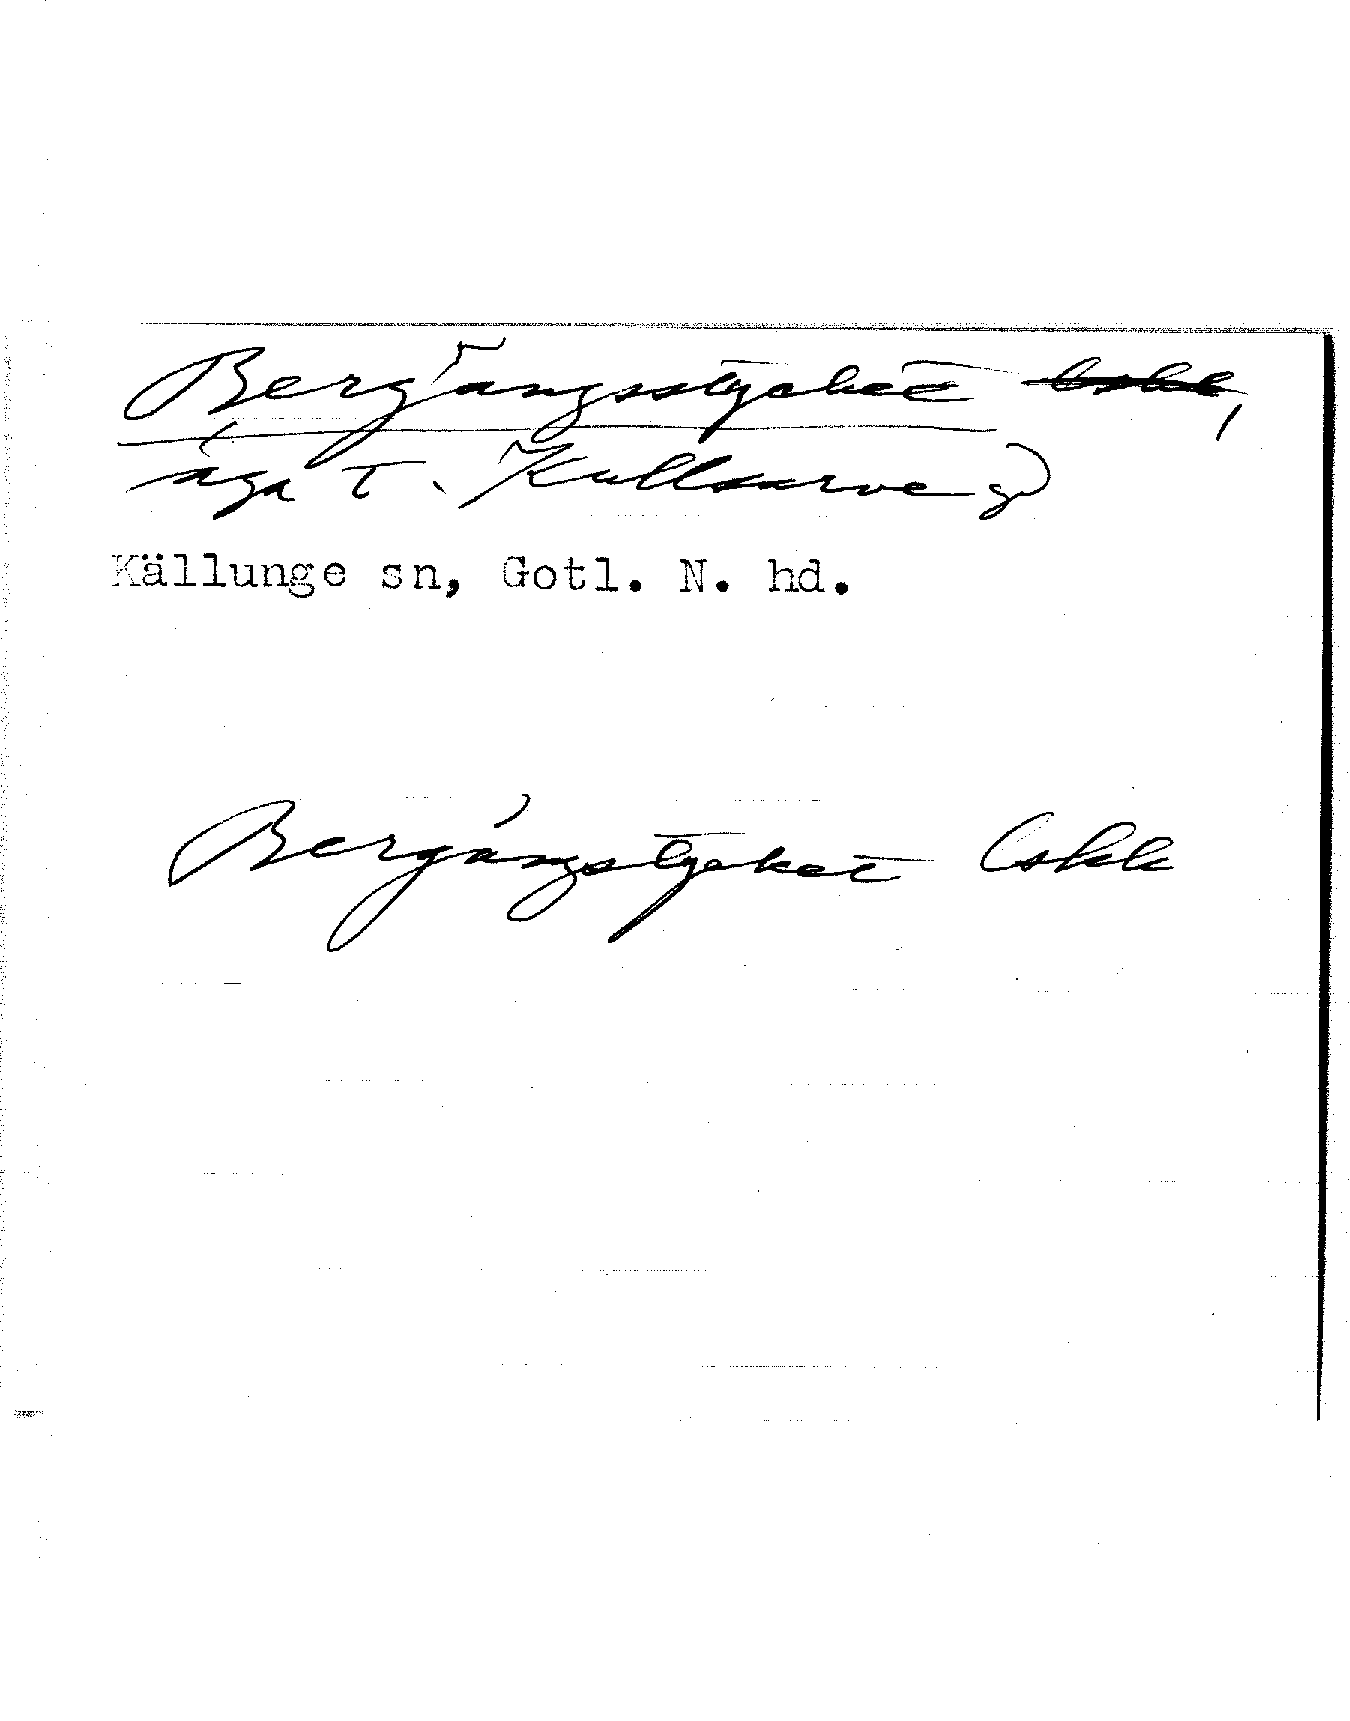 Bergängsstycket
äga t. Kullsarve gd
Källunge sn, Gotl. N. hd.
Bergängstycket Cskk